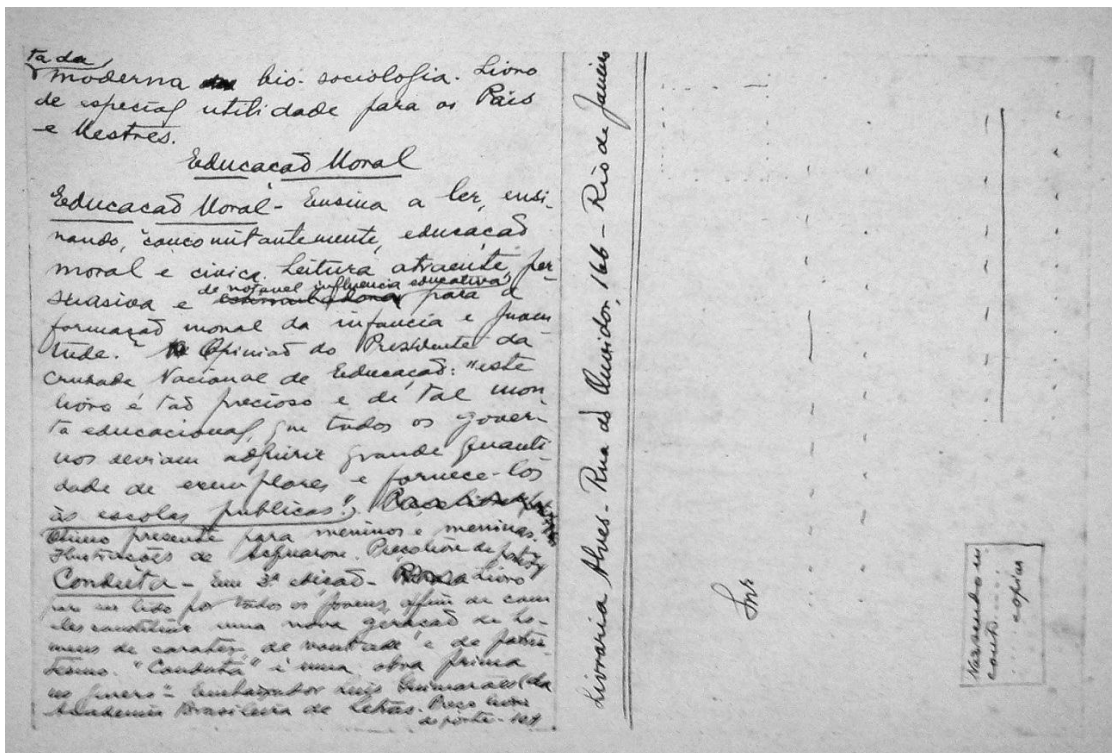 ta da
moderna bio-sociologia. Livro
de especial utilidade para os Pais
e Mestres.
Educação Moral
Educação Moral - Ensina a ler, ensi-
nando, concomitantemente, educação
moral e civica. Leitura atraente, per-
suasiva e de notavel influencia educativa para a
formação moral da infancia e juven
tude." Opinião do Presidente da
Cruzada Nacional de Educação: "este
livro é tão precioso e de tal mon
ta educacional, que todos os gover-
nos deviam adquirir grande quanti
dade de exemplares e fornece-los
às escolas publicas".
Otimo presente para meninos e meninas.
Ilustrações de Acquarone. Preço livre de porte
Conduta - Em 3ª edição - Livro
para ser lido por todos os jovens, afim de com
eles constituir uma nova geração de ho-
mens de carater, de vontade e de patrio
tismo. "Conduta" é uma obra prima
no genero" - Embaixador Luis Guimarães (da
Academia Brasileira de Letras. Preço livre
de porte - 10$
Livraria Alves - Rua do Ouvidor, 166 - Rio de Janeiro
Snr
copias